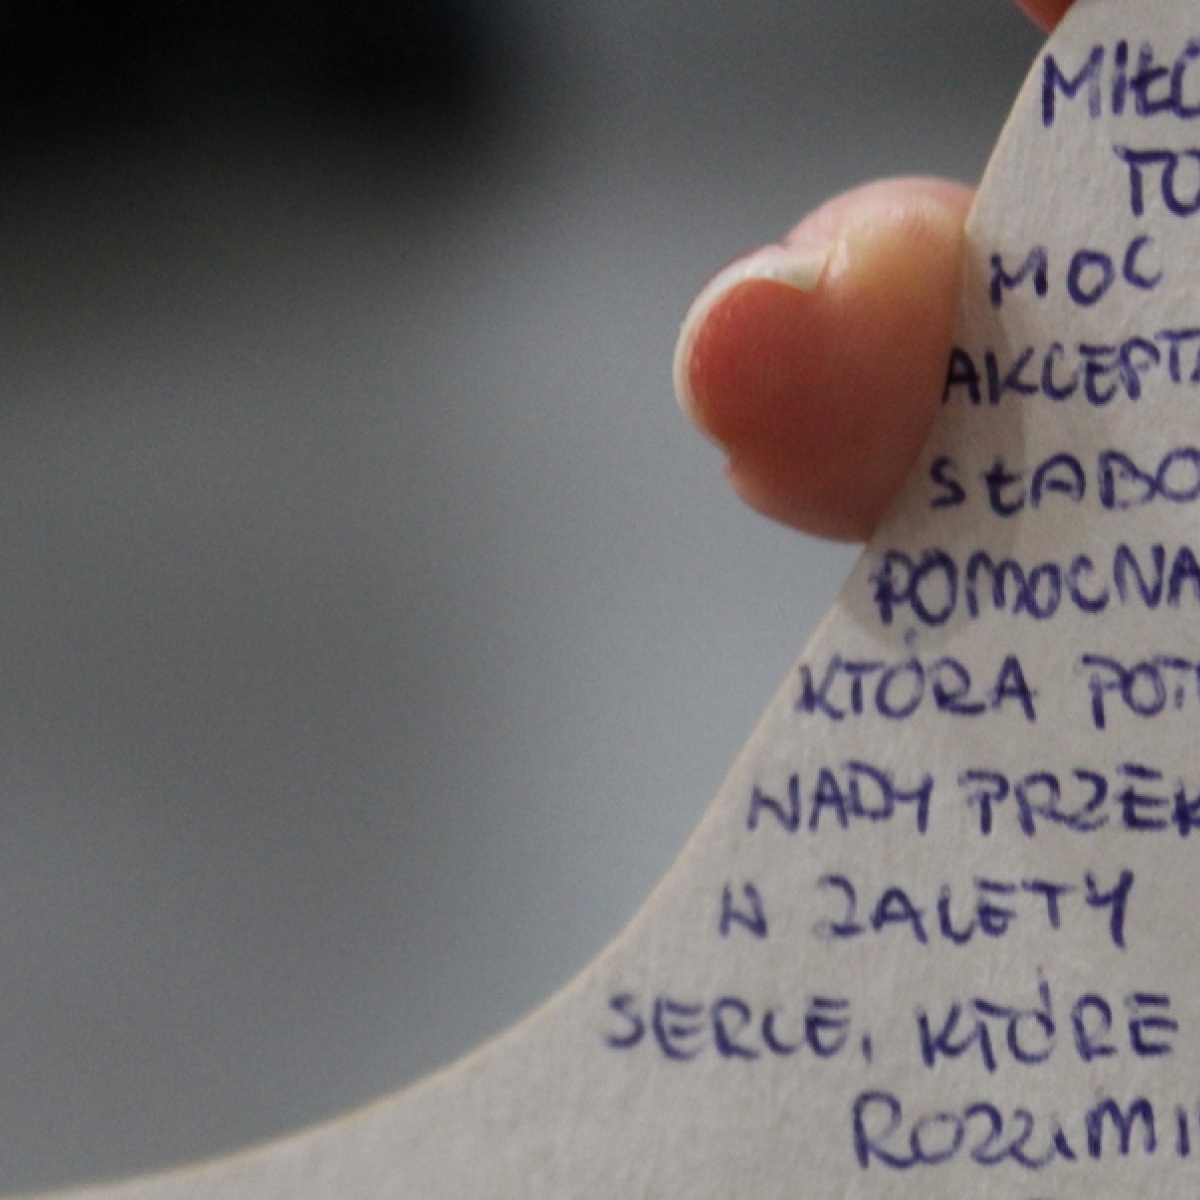 MIŁO
TO
MOC
AKCEPTA
SŁABO
POMOCNA
KTÓRA POT
WADY PRZEK
W ZALETY
SERCE, KTÓRE
ROZUMI